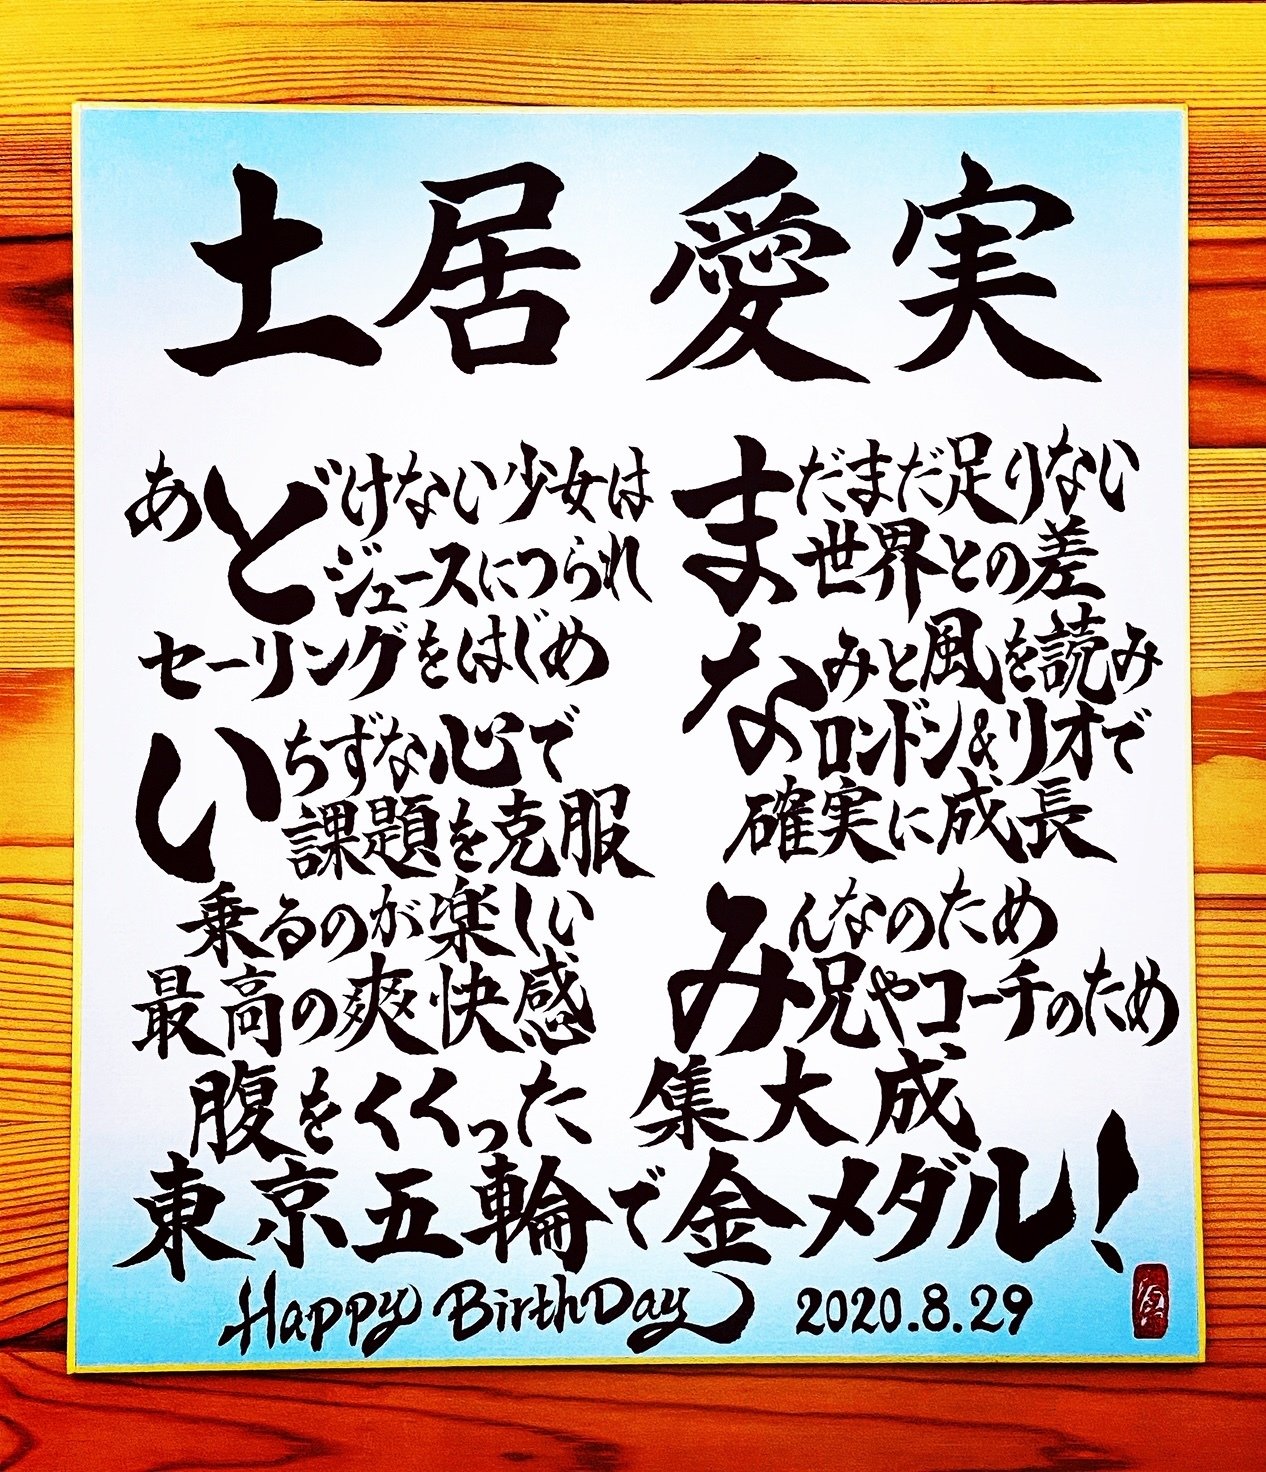 土居 愛実
あどけない少女は
ジュースにつられ
セーリングをはじめ
いちずな心で
課題を克服
乗るのが楽しい
最高の爽快感
まだまだ足りない
世界との差
なみと風を読み
ロンドン&リオで
確実に成長
みんなのため
兄やコーチのため
腹をくくった 集大成
東京五輪で金メダル!
Happy BirthDay 2020.8.29